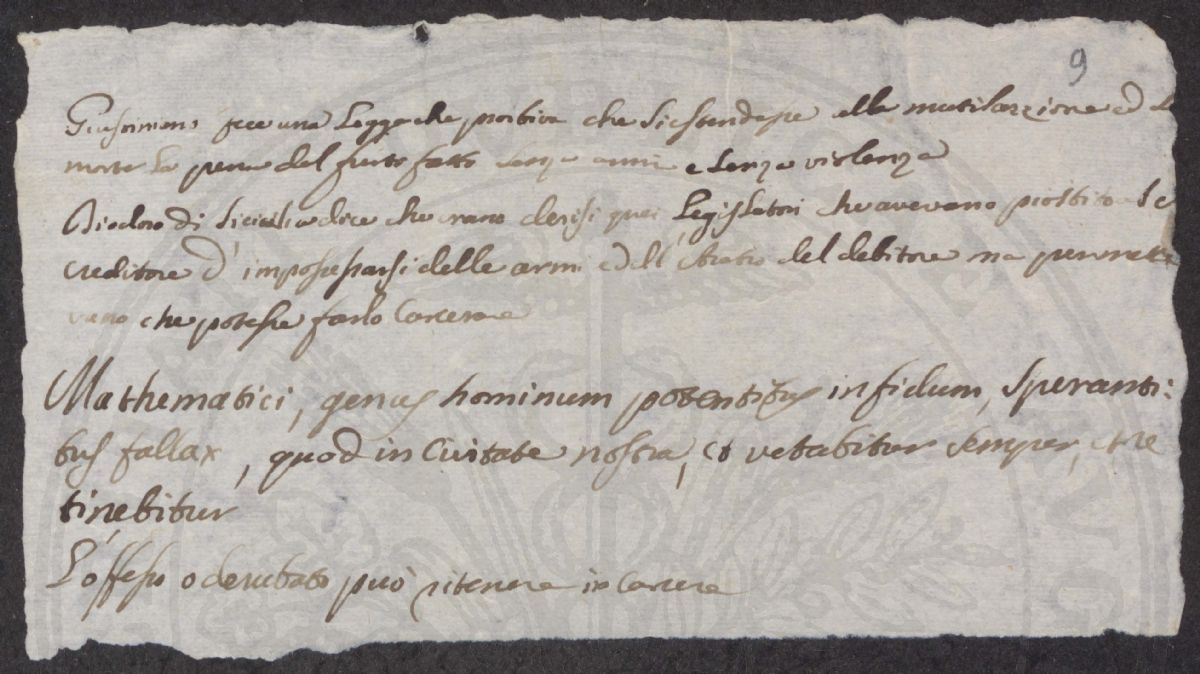 9
Giustiniano fece una Legge che proibiva che si estendesse alla mutilazzione ed a
morte la pena del furto fatto senza armi e senza violenza
Diodoro di Sicilia dice che erano derisi quei Legislatori che avevano proibito al
creditore d'impossessarsi delle armi e dell'aratro del debitore ma permette
vano che potesse farlo Carcerare
Mathematici, genus hominum potentibus infidum, speranti:
bus fallax, quod in Civitate nostra, et vetabitur semper, et re
tinebitur
L'offeso o derubato può ritenere in Carcere